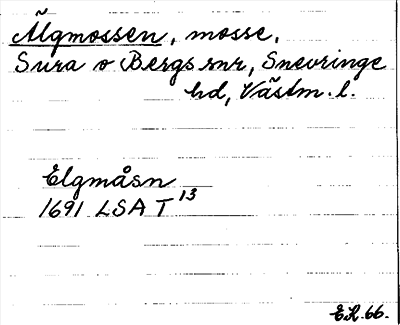 Älgmossen, mosse,
Sura o Bergs snr, Snevringe
hd, Västm. l.
Elgmåsn
1691 LSA T 13
E.R. 66.